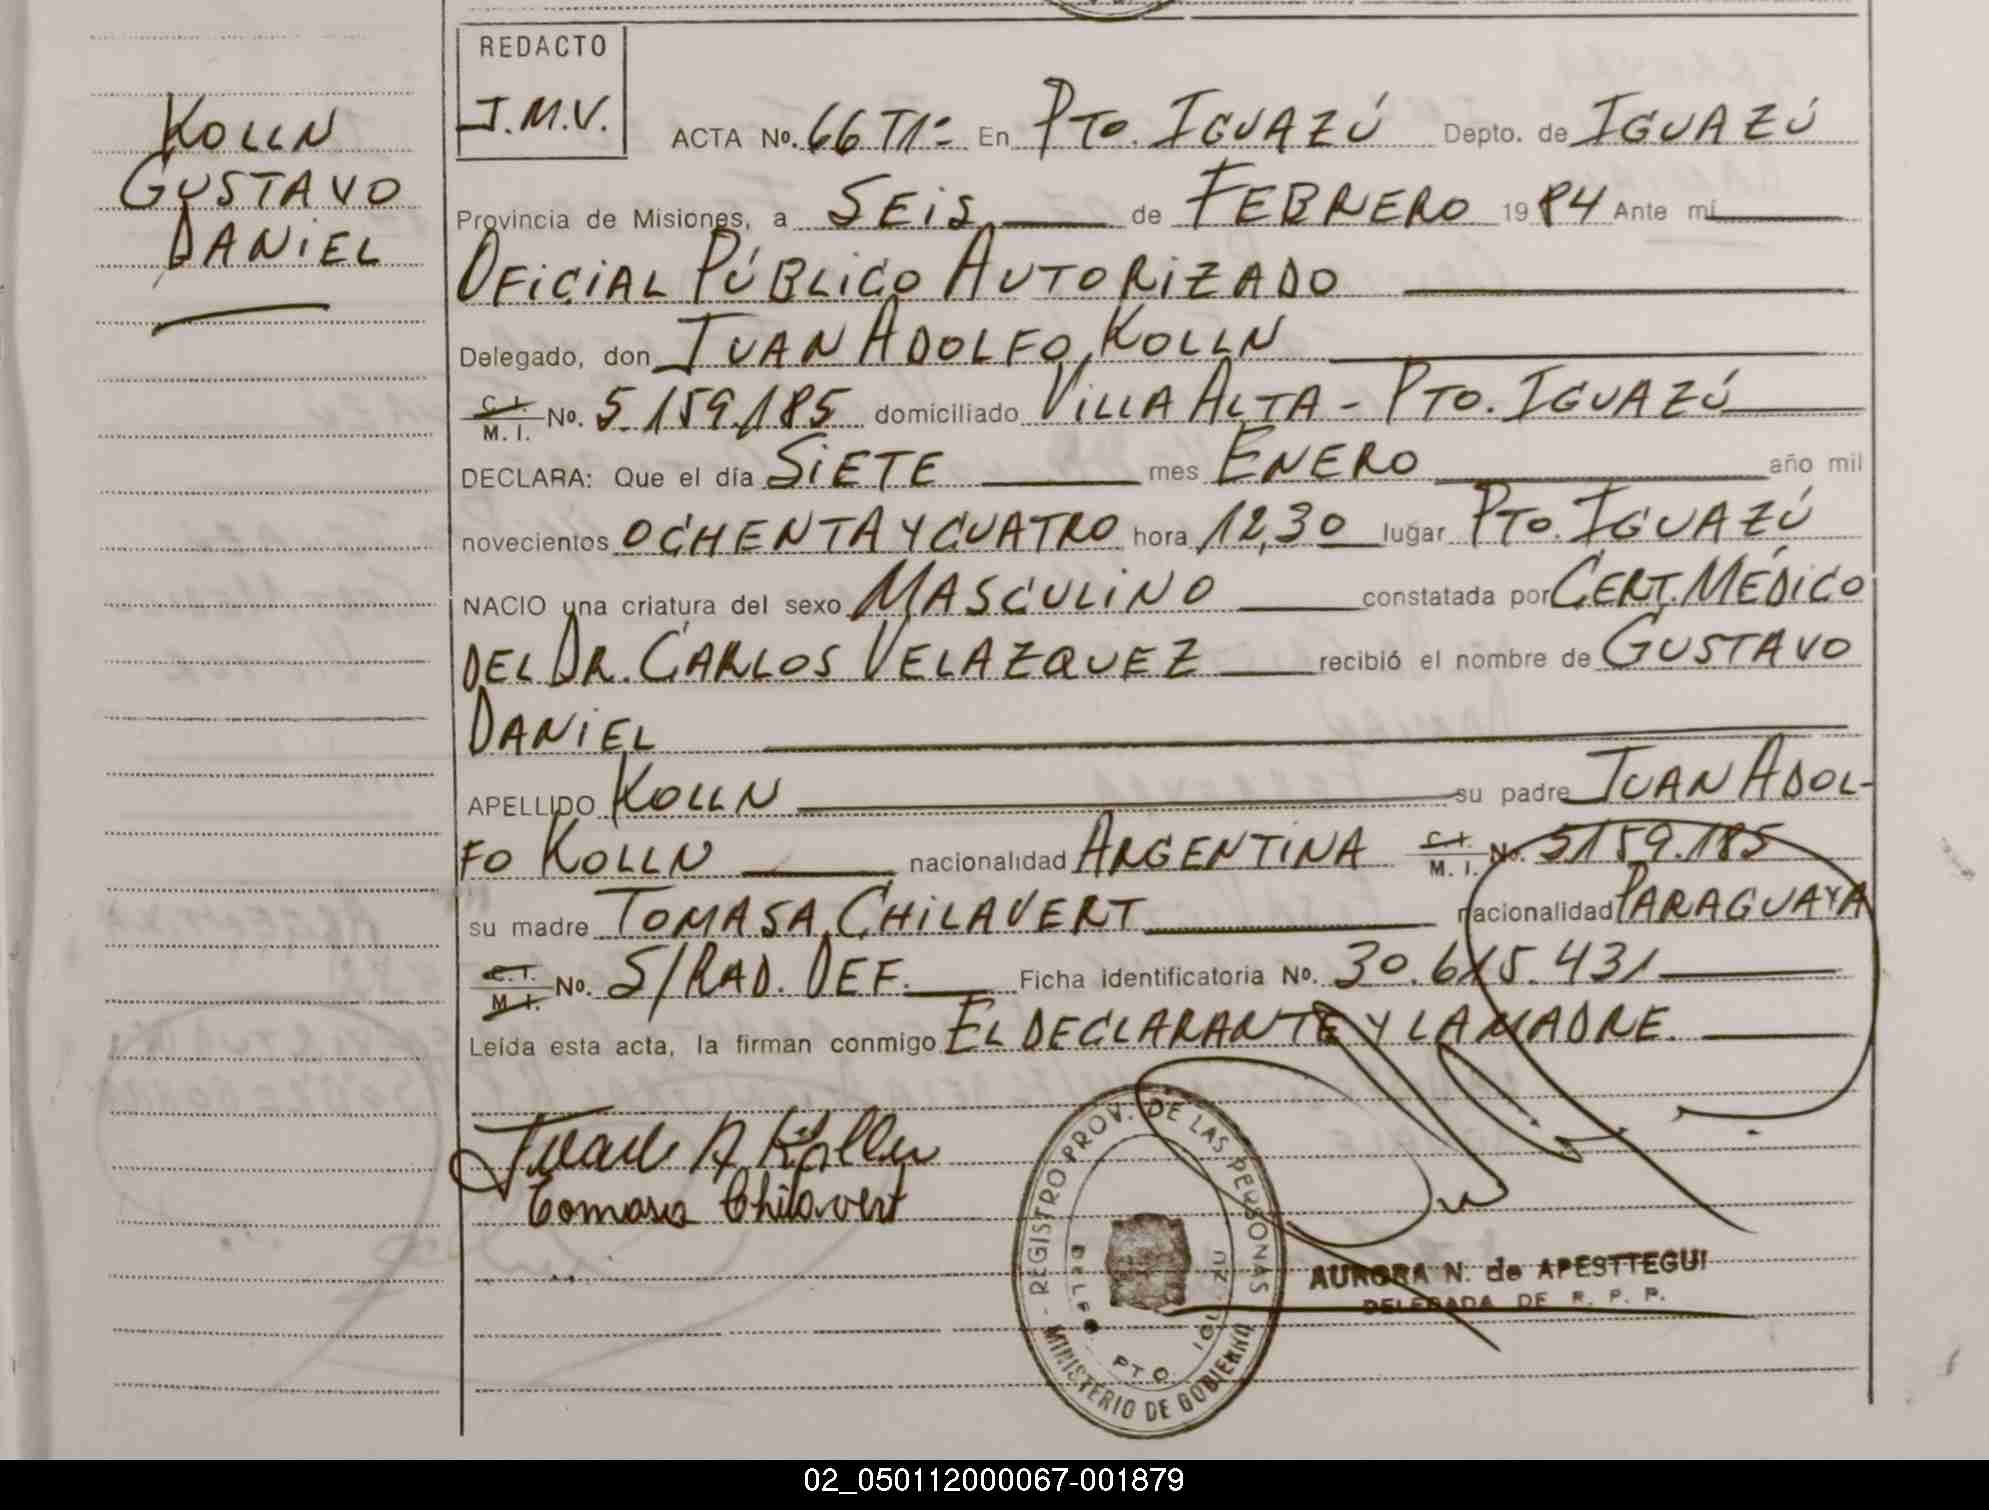 REDACTO
J.M.V.
KOLLN
GUSTAVO
DANIEL
ACTA No. 66 T1º En PTO. IGUAZÚ Depto. de IGUAZÚ
Provincia de Misiones, a SEIS de FEBRERO 1984 Ante mí
OFICIAL PÚBLICO AUTORIZADO
Delegado, don JUAN ADOLFO KOLLN
C.I. M.I. No. 5.159.185 domiciliado VILLA ALTA - PTO. IGUAZÚ
DECLARA: Que el día SIETE mes ENERO año mil
novecientos OCHENTA Y CUATRO hora 12,30 lugar PTO. IGUAZÚ
NACIO una criatura del sexo MASCULINO constatada por CERT. MÉDICO
DEL DR. CARLOS VELAZQUEZ recibió el nombre de GUSTAVO
DANIEL
APELLIDO KOLLN su padre JUAN ADOL-
FO KOLLN nacionalidad ARGENTINA C.I. M.I. No. 5159.185
su madre TOMASA CHILAVERT nacionalidad PARAGUAYA
C.I. M.I. No. S/RAD. DEF. Ficha identificatoria No. 30.615.431
Leída esta acta, la firman conmigo EL DECLARANTE Y LA MADRE.
Juan A Kolln
Tomasa Chilavert
REGISTRO PROV. DE LAS PERSONAS
MINISTERIO DE GOBIERNO
PTO
AURORA N. de APESTTEGUI
DELEGADA DE R. P. P.
02_050112000067-001879